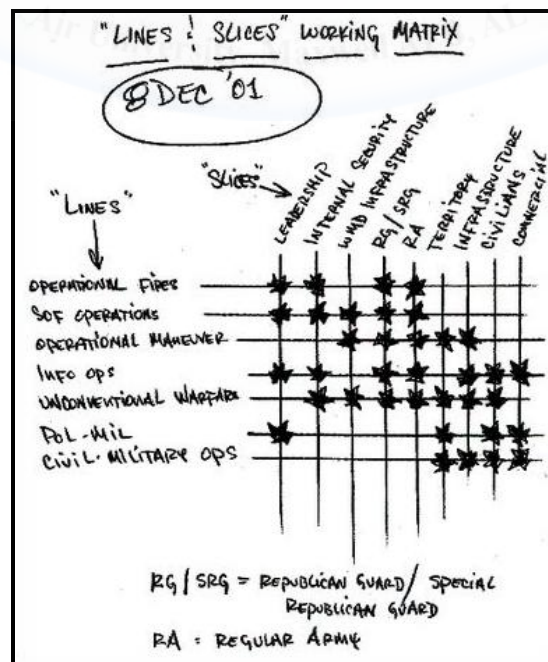 Air University, Maxwell AFB, AL
"LINES & SLICES" WORKING MATRIX
8 DEC '01
"SLICES"
LEADERSHIP
INTERNAL SECURITY
WMD INFRASTRUCTURE
RG/SRG
RA
TERRITORY
INFRASSTRUCTURE
CIVILIANS
COMMERCIAL
"LINES"
OPERATIONAL FIRES
SOF OPERATIONS
OPERATIONAL MANEUVER
INFO OPS
UNCONVENTIONAL WARFARE
POL-MIL
CIVIL-MILITARY OPS
RG/SRG = REPUBLICAN GUARD/ SPECIAL
REPUBLICAN GUARD
RA = REGULAR ARMY